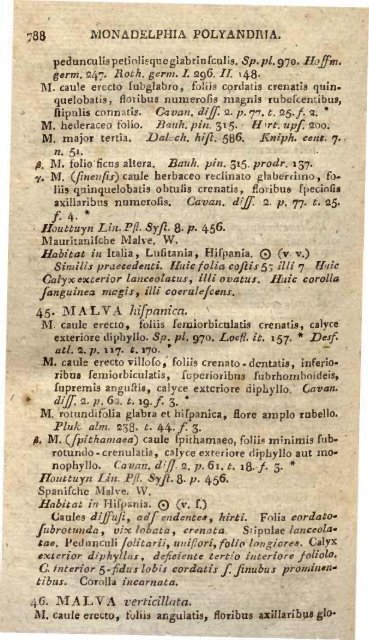 788 MONADELPHIA POLYANDRIA.
pedunculis petiolisque glabriusculis. Sp. pl. 970. Hoffm.
germ. 247. Roth. germ. I. 296. II. 148.
M. caule erecto subglabro, foliis cordatis crenatis quin-
quelobatis, floribus numerosis magnis rubescentibus,
stipulis connatis. Cavan. diss. 2. p. 77. t. 25. f. 2. *
M. hederaceo folio. Bauh. pin. 315. Hort. ups. 200.
M. major tertia. Dalech. hist. 586. Kniph. cent. 7.
n. 51.
β. M. folio ficus altera. Bauh. pin. 315. prodr. 137.
γ. M. (sinensis) caule herbaceo reclinato glaberrimo, fo-
liis quinquelobatis obtusis crenatis, floribus speciosis
axillaribus numerosis. Cavan. diss. 2. p. 77. t. 25.
f. 4. *
Houttuyn Lin. Pfl. Syst. 8. p. 456.
Mauritanische Malve. W.
Habitat in Italia, Lusitania, Hispania. ☉ (v. v.)
Similis praecedenti. Huic folia costis 5; illi 7 Huic
Calyx exterior lanceolatus, illi ovatus. Huic corolla
sanguinea magis, illi coerulescens.
45. MALVA hispanica.
M. caule erecto, foliis semiorbiculatis crenatis, calyce
exteriore diphyllo. Sp. pl. 970. Loefl. it. 157. * Desf.
atl. 2. p. 117. t. 170.
M. caule erecto villoso, foliis crenato-dentatis, inferio-
ribus semiorbiculatis, superioribus subrhomboideis,
supremis angustis, calyce exteriore diphyllo. Cavan.
diss. 2. p. 62. t. 19. f. 3. *
M. rotundifolia glabra et hispanica, flore amplo rubello.
Pluk. alm. 238. t. 44. f. 3.
β. M. (spithamaea) caule spithamaeo, foliis minimis sub-
rotundo-crenulatis, calyce exteriore diphyllo aut mo-
nophyllo. Cavan. diss. 2. p. 61. t. 18. f. 3. *
Houttuyn Lin. Pfl. Syst. 8. p. 456.
Spanische Malve. W.
Habitat in Hispania. ☉ (v. s.)
Caules diffusi, adscendentes, hirti. Folia cordato-
subrotunda, vix lobata, crenata. Stipulae lanceola-
tae. Pedunculi solitarii, uniflori, folio longiores. Calyx
exterior diphyllus, deficiente tertio interiore foliolo.
C. interior 5-fidus lobis cordatis s. sinubus prominen-
tibus. Corolla incarnata.
46. MALVA verticillata.
M. caule erecto, foliis angulatis, floribus axillaribus glo-